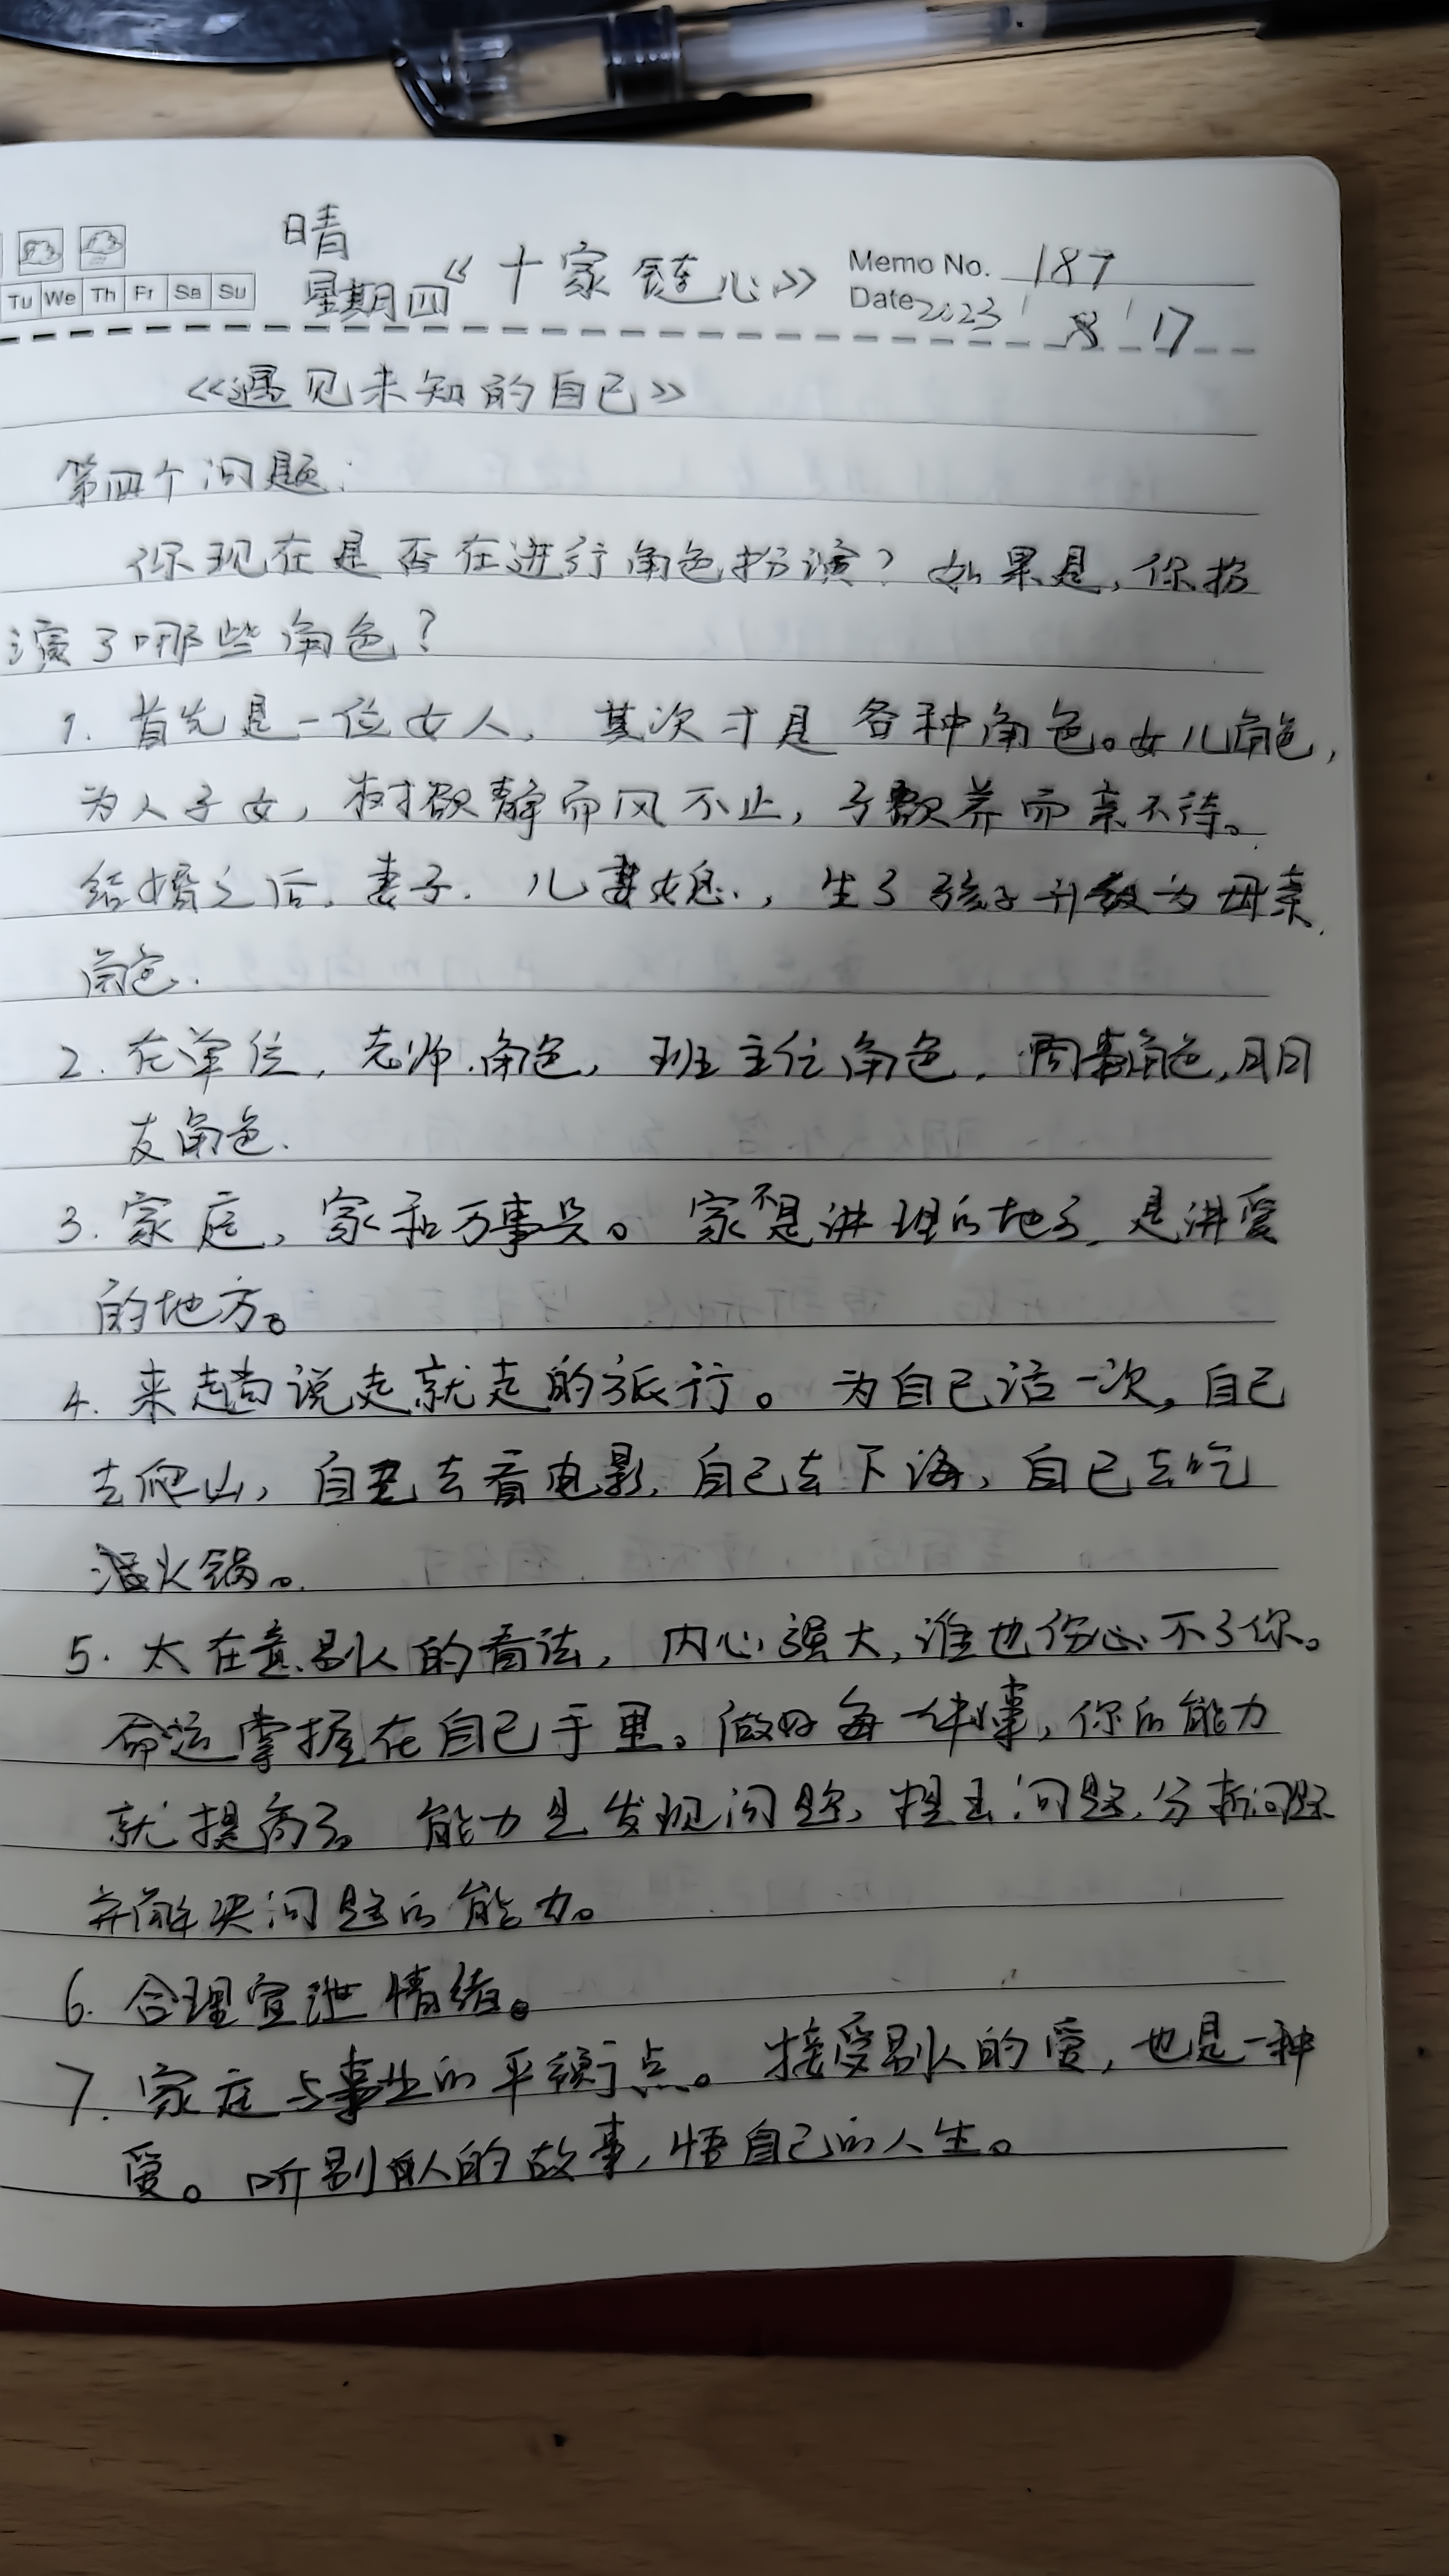 晴
星期四 《十家链心》 Memo No. 187
Tu We Th Fr Sa Su Date 2023 8 17
《遇见未知的自己》
第四个问题:
你现在是否在进行角色扮演?如果是,你扮
演了哪些角色?
1. 首先是一位女人,其次才是各种角色。女儿角色,
为人子女,树欲静而风不止,子欲养而亲不待。
结婚之后,妻子.儿媳,生了孩子升级为母亲
角色.
2. 在单位,老师.角色,班主任角色,同事角色,朋
友角色.
3. 家庭,家和万事兴。家不是讲理的地方,是讲爱
的地方。
4. 来趟说走就走的旅行。为自己活一次,自己
去爬山,自己去看电影,自己去下海,自己去吃
火锅。
5. 太在意别人的看法,内心强大,谁也伤心不了你。
命运掌握在自己手里。做好每一件事,你的能力
就提高了。能力是发现问题,提出问题,分析问题
并解决问题的能力。
6. 合理宣泄情绪。
7. 家庭与事业的平衡点。接受别人的爱,也是一种
爱。听别人的故事,悟自己的人生。